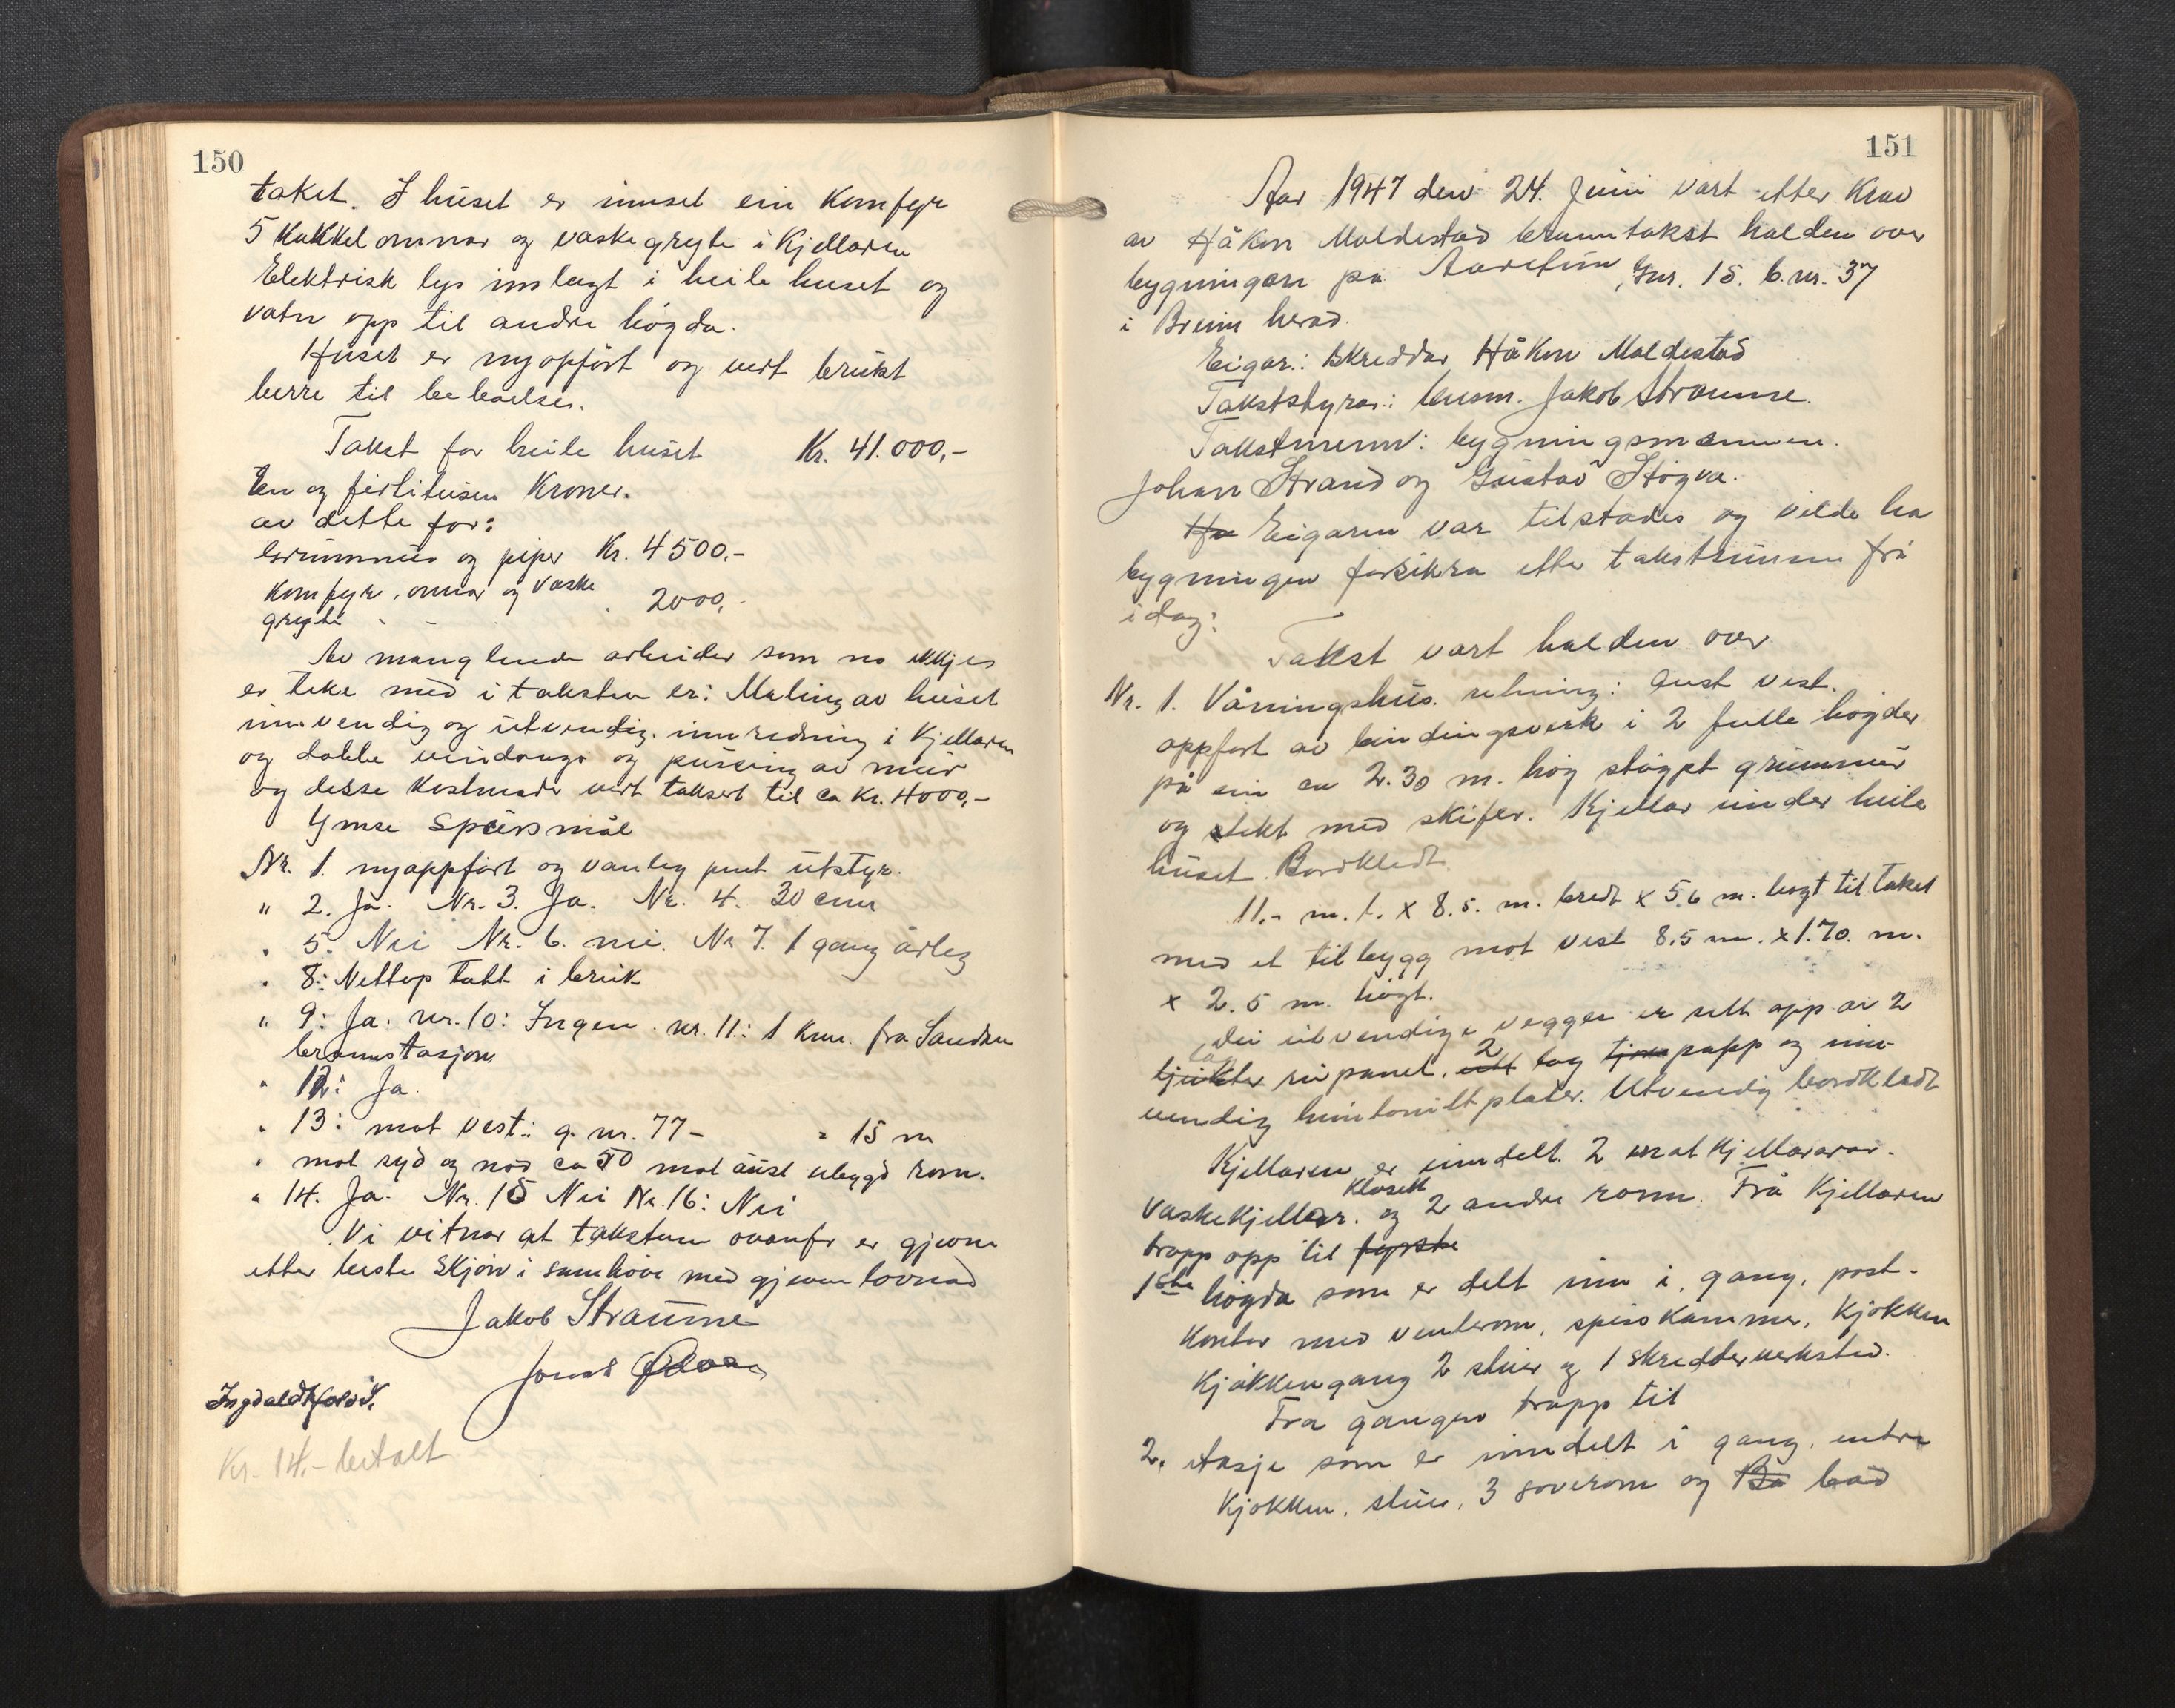 150
taket. I huset er innset ein Komfyr
5 Kakkelomnar og vaskegryte i Kjellaren
Elektrisk lys innlagt i heile huset og
vatn opp til andre høgda.
Huset er nyoppført og vert brukt
berre til beboelse.
Takst for heile huset Kr. 41.000,-
En og førtitusen Kroner.
av dette for:
Grunnmur og piper Kr. 4500,-
Komfyr, omnar og vaske
gryte - - . 2000,-
Av manglende arbeider som no ikkje
er teke med i taksten er: Maling av huset
innvendig og utvendig. innredning i Kjellaren
og doble vindauge og pussing av mur
og desse kostnader vert taksert til ca Kr. 4000,-
Ymse spørsmål
Nr. 1. nyoppført og vanleg pent utstyr.
" 2. Ja. Nr. 3. Ja. Nr. 4. 30 cm
" 5. Nei Nr. 6. nei. Nr 7. 1 gang årleg
" 8: Nettop tatt i bruk
" 9: Ja. nr. 10: Ingen. nr. 11: 1 km. fra Sandane
brannstasjon
" 12: Ja.
" 13: mot vest: g. nr. 77 - = 15 m
" mot syd og nod ca 50 mot aust ubygd rom.
" 14. Ja. Nr. 15 Nei Nr. 16: Nei
Vi vitnar at takstene ovanfor er gjevne
etter beste skjøn i samhøve med gjeven lovnad
Jakob Straume
Jonas
Kr. 14,- betalt
151
Aar 1947 den 24. Juni vart etter Krav
av Håkon Maldestad branntakst halden over
bygningen på Aaretun, Gnr. 15. b.nr. 37
i Breim herad.
Eigar: Skreddar Håkon Maldestad
Takststyrar: lensm. Jakob Straume.
Takstmenn: bygningsmennene.
Johan Strand og Gustav Støyva.
Ha Eigaren var tilstades og vilde ha
bygningen forsikra etter takstsummen frå
i dag:
Takst vart halden over
Nr. 1. Våningshus. retning: Aust vest.
oppført av bindingsverk i 2 fulle høgder
på ein ca 2.30 m. høg støypt grunnmur
og tekt med skifer. Kjellar under heile
huset. Bordkledt
11.- m. l. x 8.5. m. bredt x 5.6 m. høgt til taket
med et tilbygg mot vest 8.5 m. x 1.70. m.
x 2.5 m. høgt.
Dei utvendige vegger er sett opp av 2
lag
rupanel. 2 lag papp og inn-
vendig huntonittplater. Utvendig bordkledt
Kjellaren er inndelt. 2 matkjellarar.
Vaskekjellar. Klosett og 2 andre rom. Frå Kjellaren
trapp opp til fyrste
1ste høgda som er delt inn i, gang, post-
kontor med venterom, spisskammer, Kjøkken
Kjøkkengang 2 stuer og 1 skredderverksted.
Fra gangen trapp til
2. etasje som er inndelt i gang, entre
Kjøkken, stue, 3 soverom og Ba bad